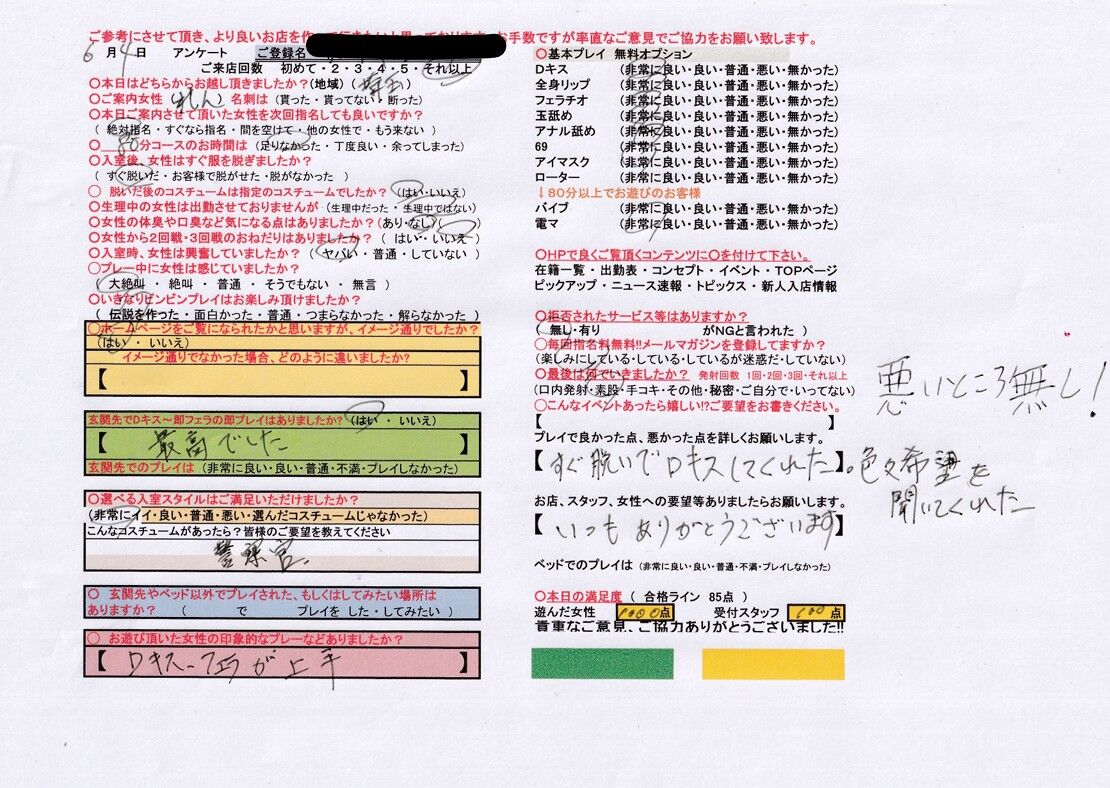 ご参考にさせて頂き、より良いお店を作って行きたいと思っております。お手数ですが率直なご意見でご協力をお願い致します。
6月4日 アンケート ご登録名
ご来店回数 初めて・2・3・4・5・それ以上
〇本日はどちらからお越し頂きましたか?(地域)( 埼玉 )
〇ご案内女性 (れん) 名刺は (貰った・貰ってない・断った)
〇本日ご案内させて頂いた女性を次回指名しても良いですか?
( 絶対指名・すぐなら指名・間を空けて・他の女性で・もう来ない )
〇 80分コースのお時間は (足りなかった・丁度良い・余ってしまった)
〇入室後、女性はすぐ服を脱ぎましたか?
( すぐ脱いだ・お客様で脱がせた・脱がなかった )
〇 脱いだ後のコスチュームは指定のコスチュームでしたか? (はい・いいえ)
〇生理中の女性は出勤させておりませんが (生理中だった・生理中ではない)
〇女性の体臭や口臭など気になる点はありましたか? (あり・なし)( )
〇女性から2回戦・3回戦のおねだりはありましたか? ( はい・ いいえ )
〇入室時、女性は興奮していましたか? ( ヤバい・普通・していない )
〇プレー中に女性は感じていましたか?
( 大絶叫 ・ 絶叫 ・ 普通 ・ そうでもない ・ 無言 )
〇いきなりビンビンプレイはお楽しみ頂けましたか?
( 伝説を作った・面白かった・普通・つまらなかった・解らなかった )
〇ホームページをご覧になられたかと思いますが、イメージ通りでしたか?
(はい ・ いいえ)
イメージ通りでなかった場合、どのように違いましたか?
【 】
玄関先でDキス～即フェラの即プレイはありましたか? (はい ・ いいえ)
【 最高でした 】
玄関先でのプレイは (非常に良い・良い・普通・不満・プレイしなかった)
〇選べる入室スタイルはご満足いただけましたか?
(非常にイイ・良い・普通・悪い・選んだコスチュームじゃなかった)
こんなコスチュームがあったら?皆様のご要望を教えてください
警察官
〇 玄関先やベッド以外でプレイされた、もしくはしてみたい場所は
ありますか? ( で プレイを した・してみたい )
〇 お遊び頂いた女性の印象的なプレーなどありましたか?
【 Dキス、フェラが上手 】
〇基本プレイ 無料オプション
Dキス (非常に良い・良い・普通・悪い・無かった)
全身リップ (非常に良い・良い・普通・悪い・無かった)
フェラチオ (非常に良い・良い・普通・悪い・無かった)
玉舐め (非常に良い・良い・普通・悪い・無かった)
アナル舐め (非常に良い・良い・普通・悪い・無かった)
69 (非常に良い・良い・普通・悪い・無かった)
アイマスク (非常に良い・良い・普通・悪い・無かった)
ローター (非常に良い・良い・普通・悪い・無かった)
↓80分以上でお遊びのお客様
バイブ (非常に良い・良い・普通・悪い・無かった)
電マ (非常に良い・良い・普通・悪い・無かった)
〇HPで良くご覧頂くコンテンツに〇を付けて下さい。
在籍一覧・出勤表・コンセプト・イベント・TOPページ
ピックアップ・ニュース速報・トピックス・新人入店情報
〇拒否されたサービス等はありますか?
( 無し・有り がNGと言われた )
〇毎回指名料無料!!メールマガジンを登録してますか?
(楽しみにしている・している・しているが迷惑だ・していない)
〇最後は何でいきましたか? 発射回数 1回・2回・3回・それ以上
(口内発射・素股・手コキ・その他・秘密・ご自分で・いってない)
〇こんなイベントあったら嬉しい!?ご要望をお書きください。
【 】
プレイで良かった点、悪かった点を詳しくお願いします。
【すぐ脱いでDキスしてくれた】。色々希望を
聞いてくれた
悪いところ無し!
お店、スタッフ、女性への要望等ありましたらお願いします。
【 いつもありがとうございます】
ベッドでのプレイは (非常に良い・良い・普通・不満・プレイしなかった)
〇本日の満足度 ( 合格ライン 85点 )
遊んだ女性 1000点 受付スタッフ 100点
貴重なご意見、ご協力ありがとうございました!!